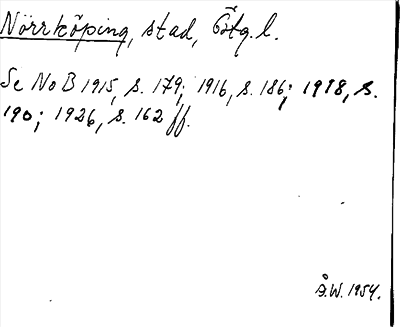 Nörrköping, stad, Östg. l.
Se No B 1915, s. 179; 1916, s. 186; 1918, s.
190; 1926, s. 162 ff.
Å.W. 1954.